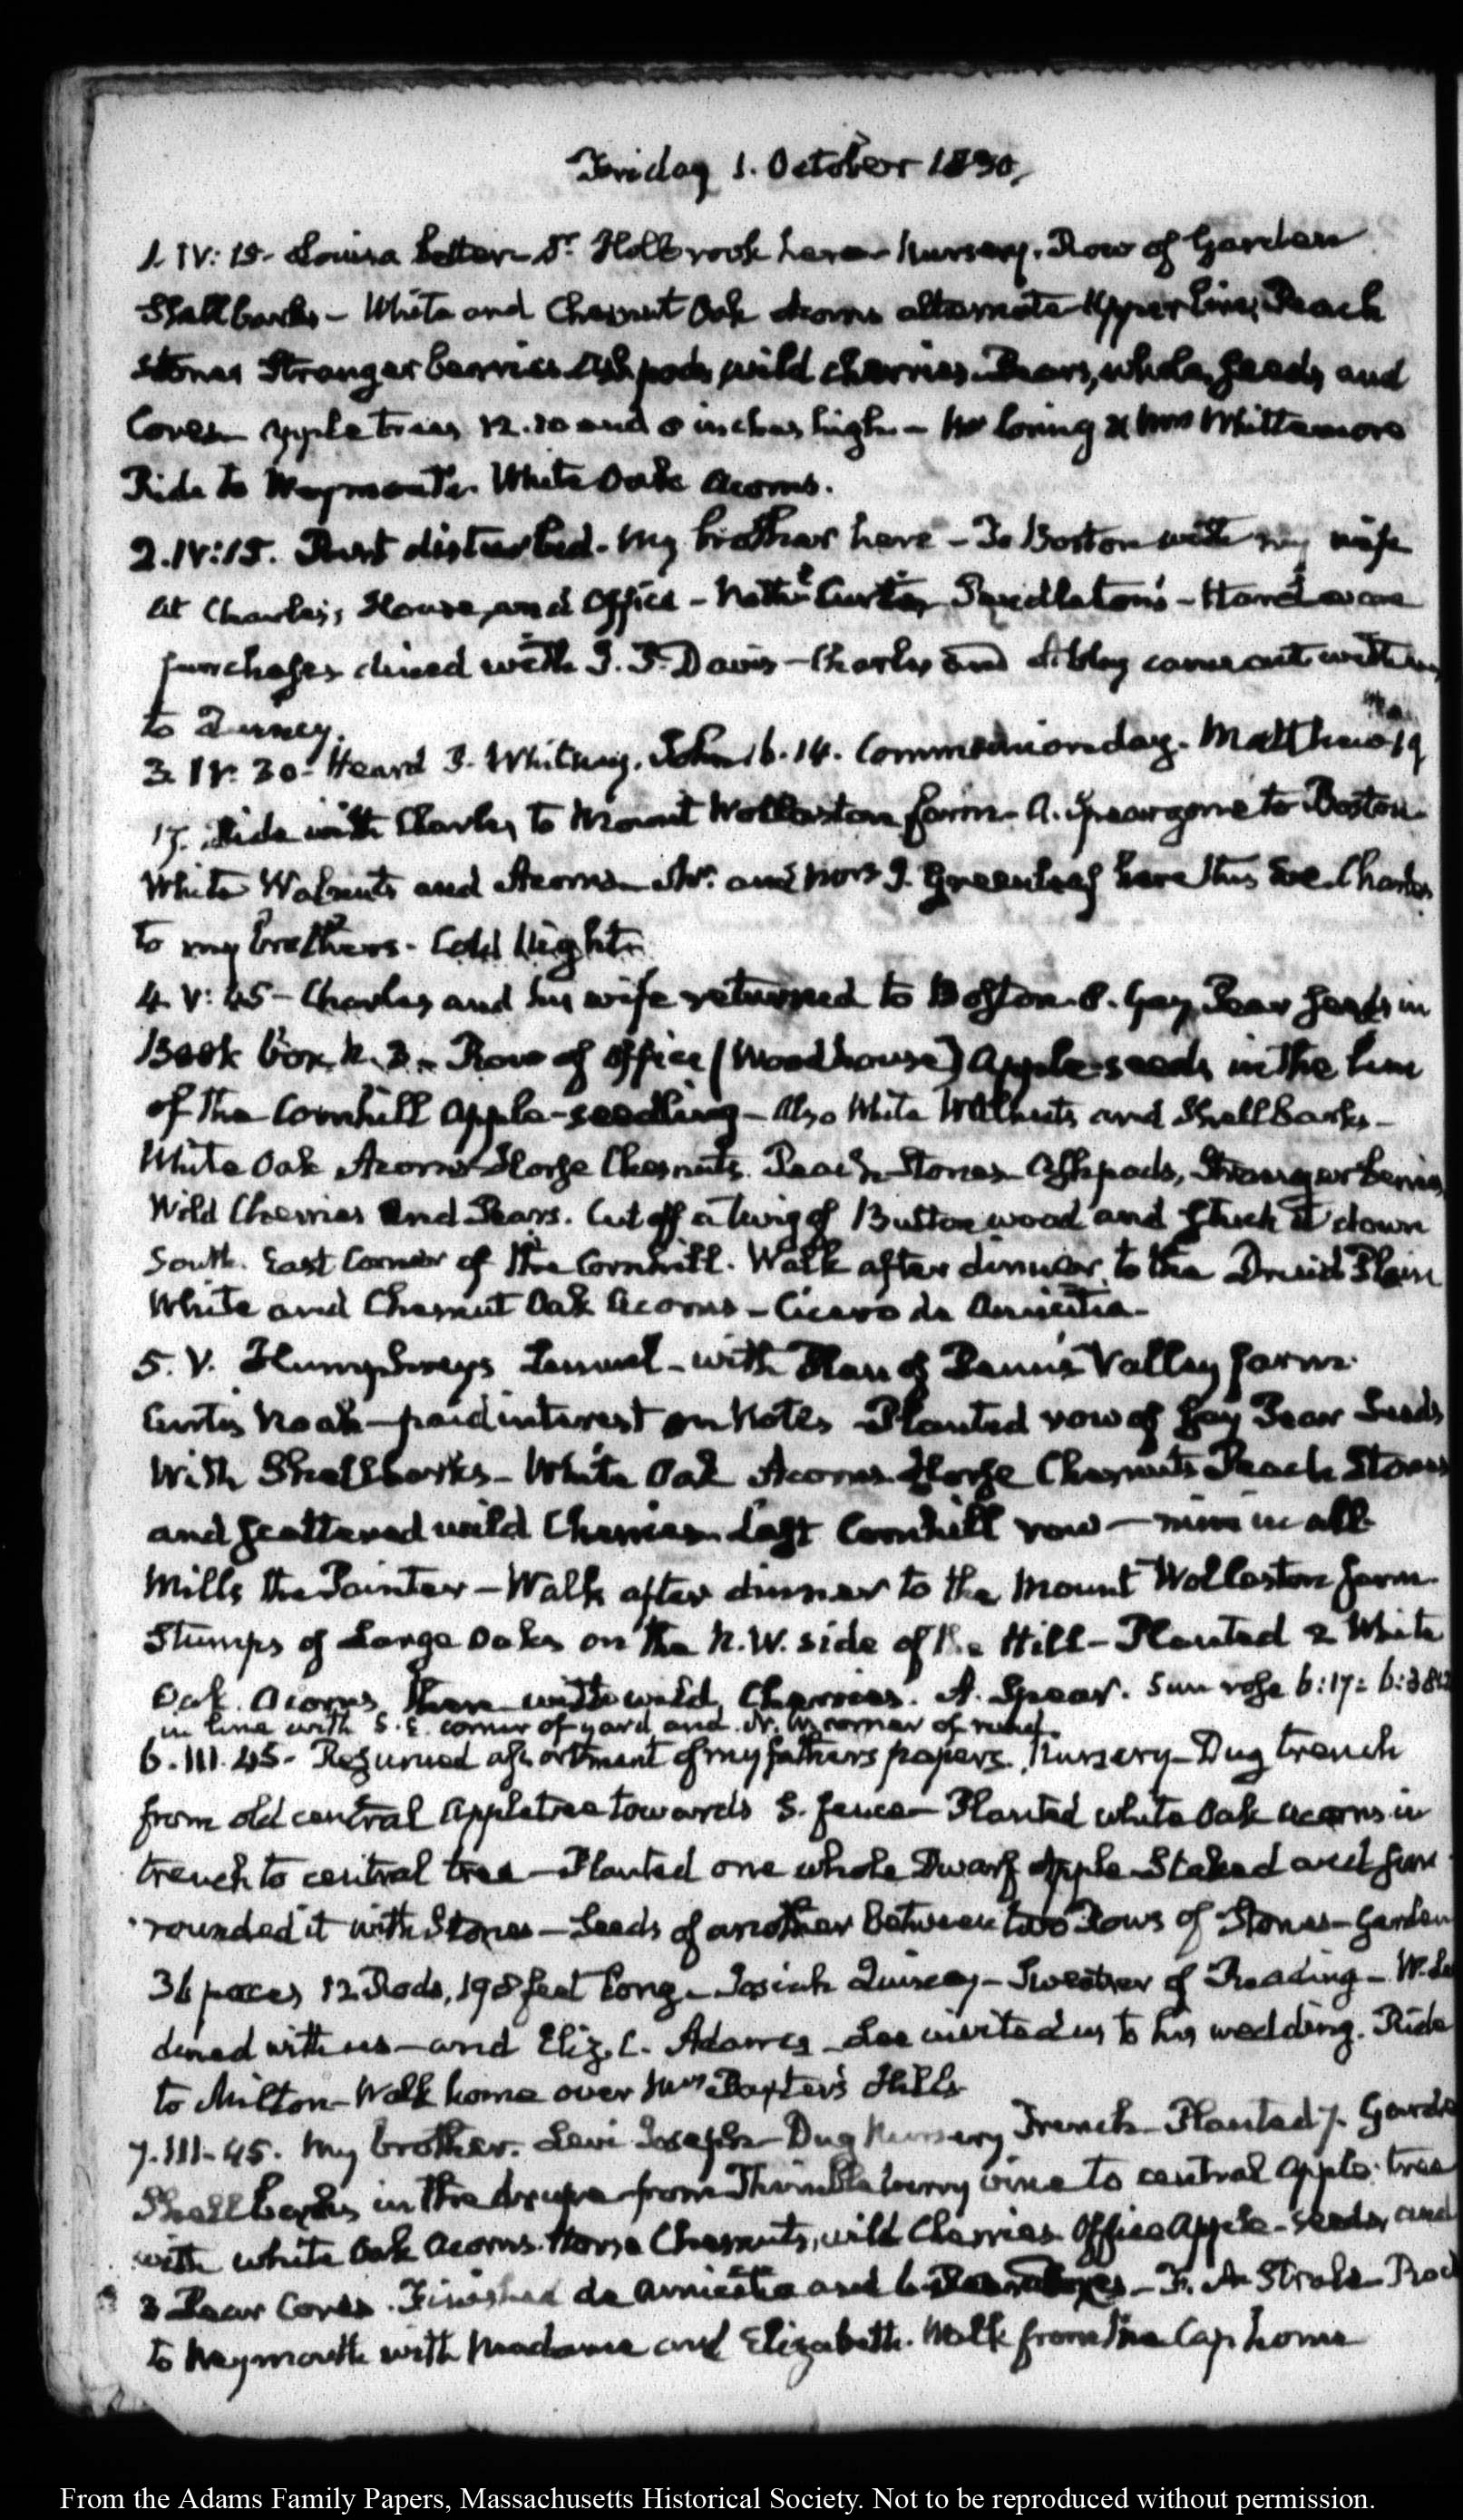 Friday 1. October 1830.
1. IV: 15. Louisa better. Dr. Holbrook here. Nursery. Row of Garden
Shellbarks – White and Chesnut Oak Acorns alternate Upper line, Peach
Stones Stranger berries Ash pods, wild cherries. Pears, whole, seeds, and
Cores. Apple trees 12. 10 and 8 inches high – Whittemore
Ride to Weymouth. White Oak Acorns.
2. IV: 15. Rest disturbed. My brother here – To Boston with my wife
at Charles's House, and Office – Curtis, Pendleton's – Hardware
purchases dined with I. P. Davis – Charles and Abby came out with us
to Quincy.
3. IV. 30. Heard Whitney. John 6. 14. Communion day. Matthew 19
17. Ride with Charles to Mount Wollaston farm. A. Spear gone to Boston.
White Walnuts and Acorns. Mr. and Mrs Greenleaf here this Eve. Charles
to my brothers. Cold Night.
4. V: 45 – Charles and his wife returned to Boston. Gay, Pear seeds in
Book box. N. 3. Row of Office (Woodhouse) Apple-seeds in the line
of the Cornhill Apple-seedling – Also White Walnuts and Shellbarks –
White Oak Acorns Horse Chesnuts. Peach Stones. Ash pods, Stranger berries
Wild Cherries and Pears. Cut off a twig of Buttonwood and stuck it down
South. East Corner of the Cornhill. Walk after dinner, to the Druid Plain
White and Chesnut Oak Acorns – Cicero de Amicitia –
5. V. Humphreys Lemuel – with Plan of Penn's Valley farm.
Curtis Noah – paid interest on Notes Planted row of Gay Pear Seeds
With Shellbarks – White Oak Acorns. Horse Chesnuts Peach Stones
and scattered wild Cherries. Last Cornhill row — nine in all.
Mills the Painter – Walk after dinner to the Mount Wollaston farm.
Stumps of Large Oaks on the N.W. side of the Hill – Planted 2 White
Oak. Acorns there with wild, Cherries. A. Spear. Sun rose 6:17:
in line with S. E. corner of yard and N. W. corner of
6. III. 45. Resumed assortment of my fathers papers. Nursery – Dug trench
from old central Appletree towards S. fence – Planted white Oak acorns in
trench to central tree – Planted one whole Dwarf Apple. Staked and sur
rounded it with Stones – Seeds of another between two Rows of Stones – Garden
36 paces, 12 Rods, 198 feet long. Josiah Quincy – Sweetser of Reading – W. Lee
dined with us – and Eliz. C. Adams. Lee invited us to his wedding. Ride
to Milton – Walk home over Mrs Baxter's Hills.
7. III. 45. My brother. Levi Joseph – Dug Nursery Trench – Planted 7. Garden
Shellbarks in the drupe – from Thimbleberry vine to central Apple tree
with white Oak acorns. Horse Chesnuts, wild Cherries. Office Apple-seeds, and
3 Pear Cores. Finished de Amicitia and – Stroke
to Weymouth with Madame and Elizabeth. Walk from the Cap. home